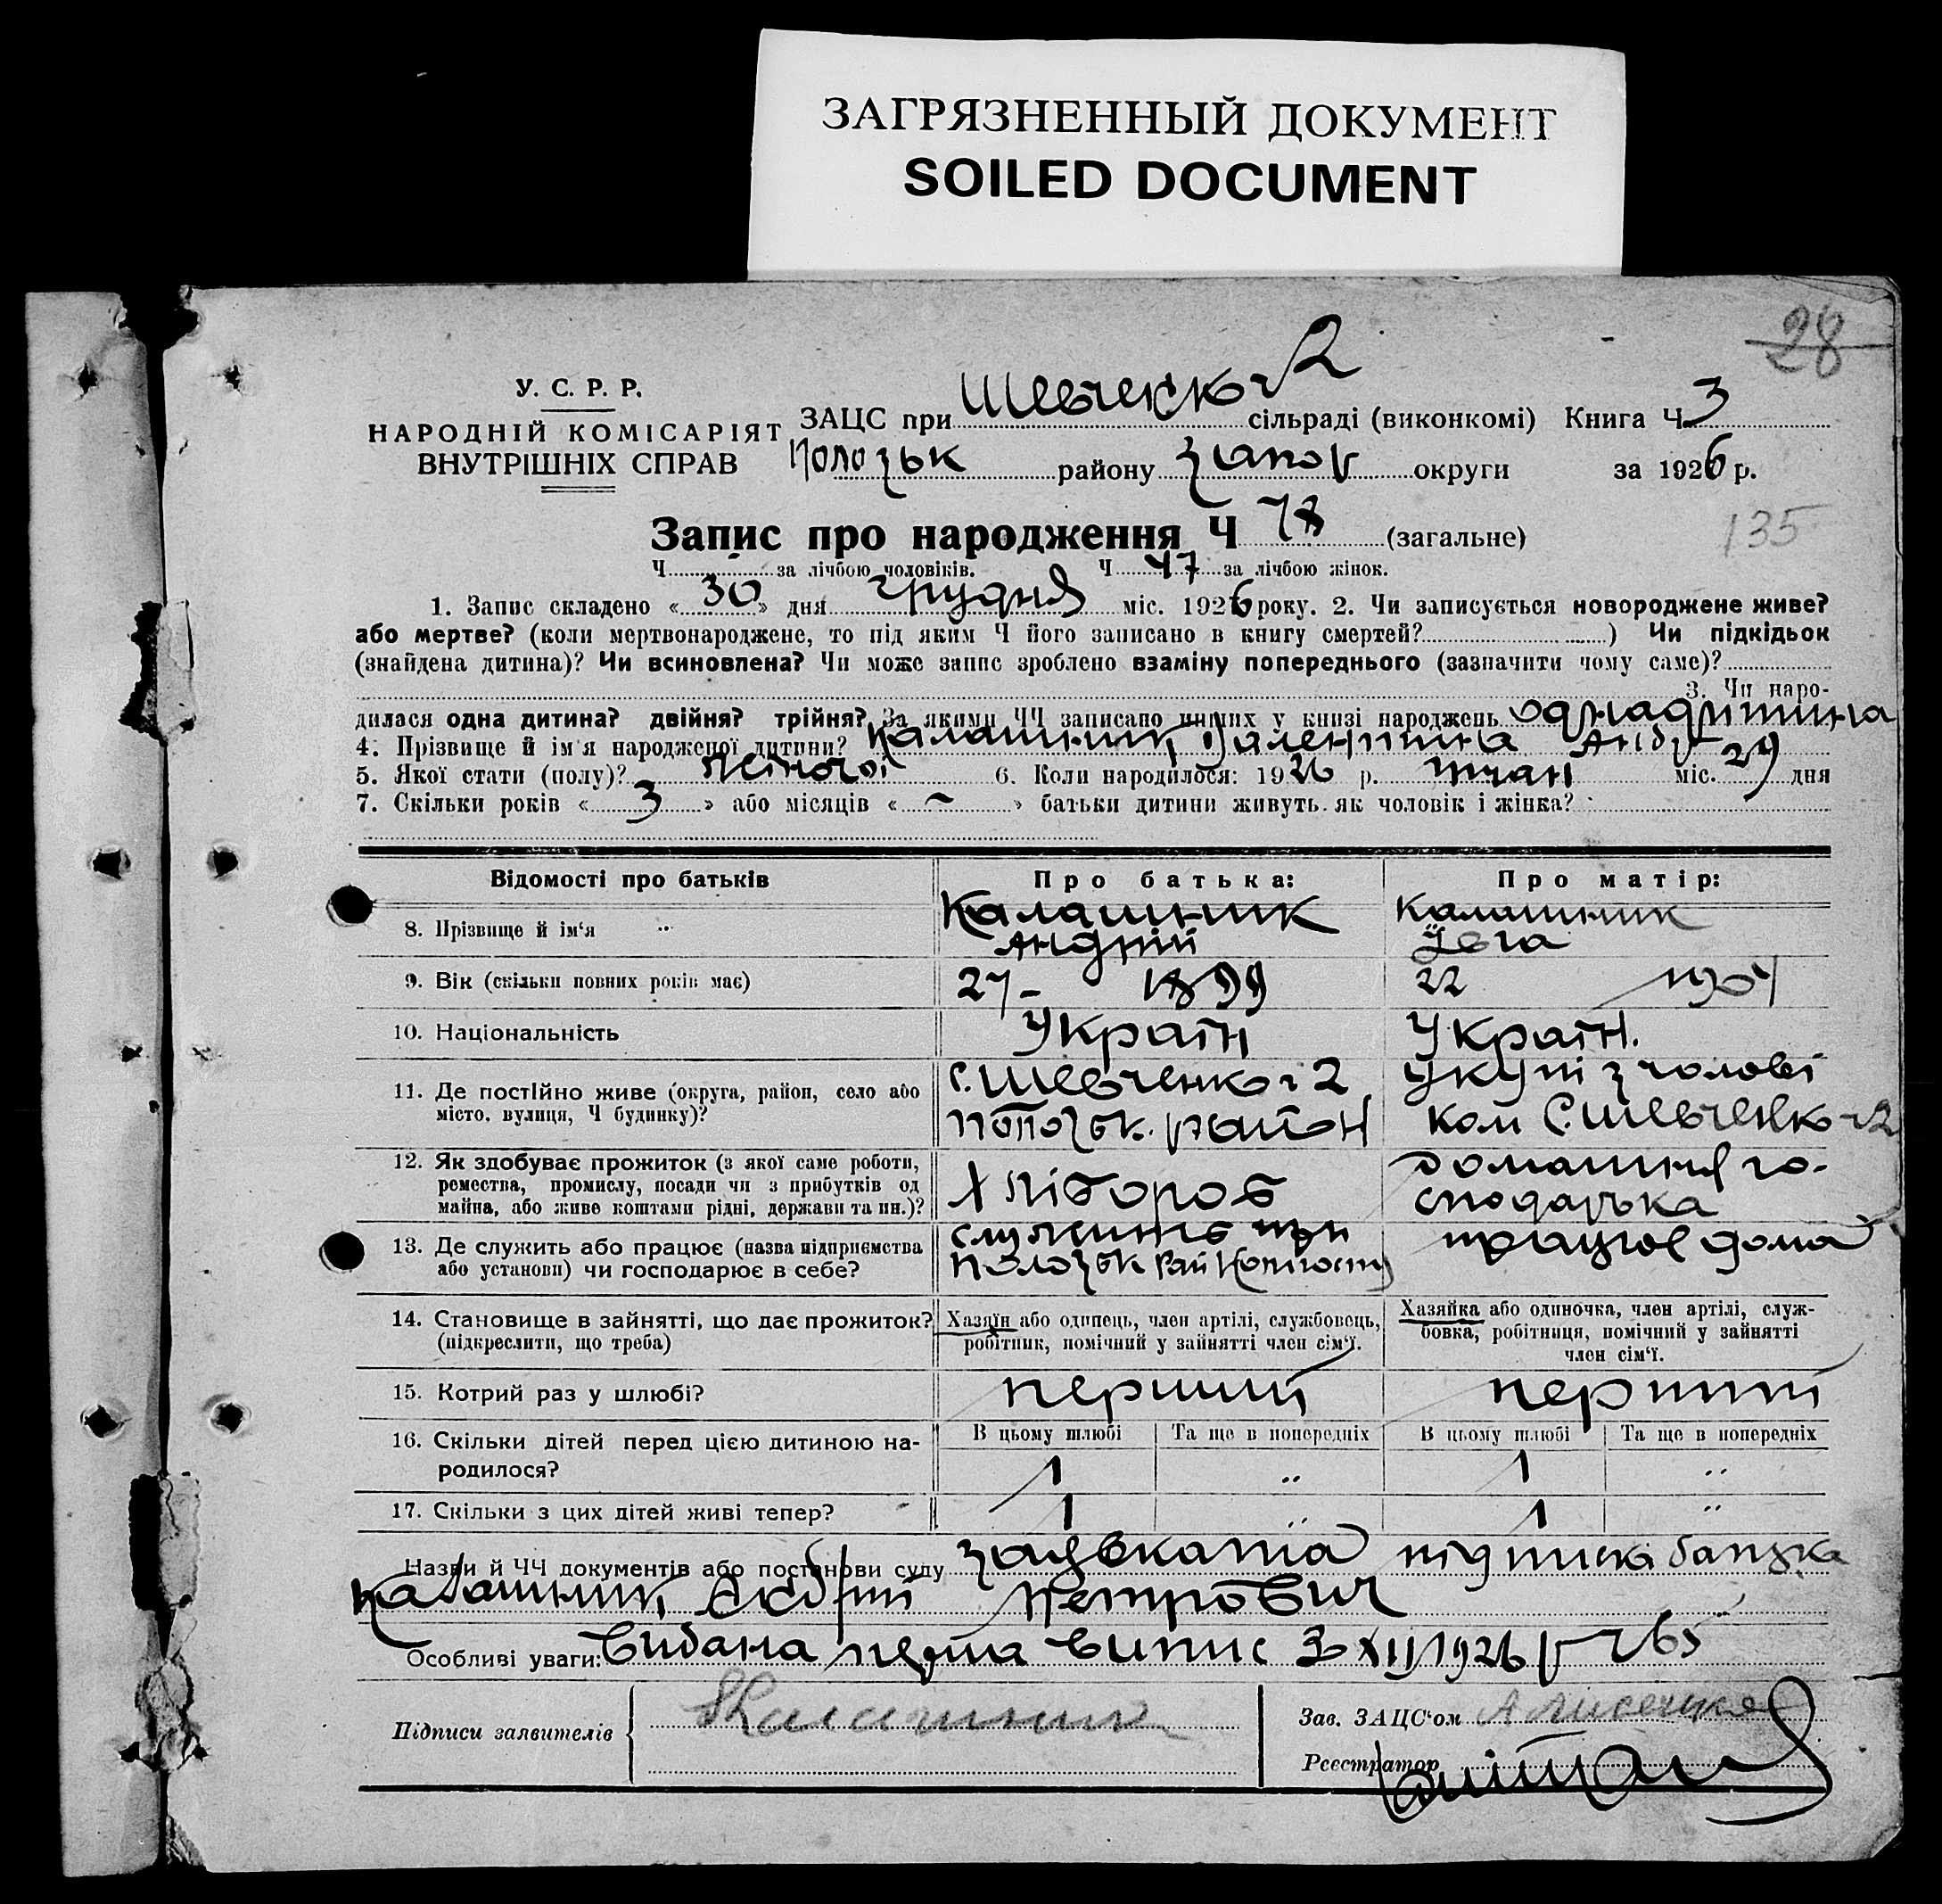 ЗАГРЯЗНЕННЫЙ ДОКУМЕНТ
SOILED DOCUMENT
28
У. С. Р. Р.
НАРОДНІЙ КОМІСАРІЯТ
ВНУТРІШНІХ СПРАВ
ЗАЦС при Шевченко 2 сільраді (виконкомі) Книга Ч 3
Пологськ району Запор округи за 1926 р.
Запис про народження Ч 78 (загальне)
135
Ч за лічбою чоловіків. Ч 47 за лічбою жінок.
1. Запис складено «30» дня грудня міс. 1926 року. 2. Чи записується новороджене живе?
або мертве? (коли мертвонароджене, то під яким Ч його записано в книгу смертей? ) Чи підкідьок
(знайдена дитина)? Чи всиновлена? Чи може запис зроблено взаміну попереднього (зазначити чому саме)?
3. Чи наро-
дилася одна дитина? двійня? трійня? За якими ЧЧ записано инших у книзі народжень одна дитина
4. Прізвище й ім'я народженої дитини? Калашник Валентина Андр
5. Якої стати (полу)? жіночої 6. Коли народилося: 1926 р. міс. 29 дня
7. Скільки років «3» або місяців «–» батьки дитини живуть як чоловік і жінка?
Відомості про батьків Про батька: Про матір:
8. Прізвище й ім'я Калашник Андрій Калашник
9. Вік (скільки повних років має) 27 – 1899 22 1904
10. Національність Україн Україн.
11. Де постійно живе (округа, район, село або
місто, вулиця, Ч будинку)?
с. Шевченко 2
район
укупі з чолові
ком с. Шевченко 2
12. Як здобуває прожиток (з якої саме роботи,
ремества, промислу, посади чи з прибутків од
майна, або живе коштами рідні, держави та ин.)?
Хлібороб
домашня го-
сподарька
13. Де служить або працює (назва підприємства
або установи) чи господарює в себе?
служить при
працює дома
14. Становище в зайнятті, що дає прожиток?
(підкреслити, що треба)
Хазяїн або одинець, член артілі, службовець,
робітник, помічний у зайнятті член сім'ї.
Хазяйка або одиночка, член артілі, служ-
бовка, робітниця, помічний у зайнятті
член сім'ї.
15. Котрий раз у шлюбі? перший перший
16. Скільки дітей перед цією дитиною на-
родилося?
В цьому шлюбі Та ще в попередніх В цьому шлюбі Та ще в попередніх
1 „ 1 „
17. Скільки з цих дітей живі тепер? 1 „ 1 „
Назви й ЧЧ документів або постанови суду
Калашник Андрій Петрович
Особливі уваги: видана перша випис 3 XII 1926 р ч 65
Підписи заявителів Калашник
Зав. ЗАЦС'ом
Реєстратор